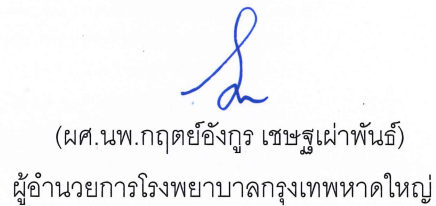 (ผศ.นพ.กฤตย์อังกูร เชษฐเผ่าพันธ์)
ผู้อำนวยการโรงพยาบาลกรุงเทพหาดใหญ่